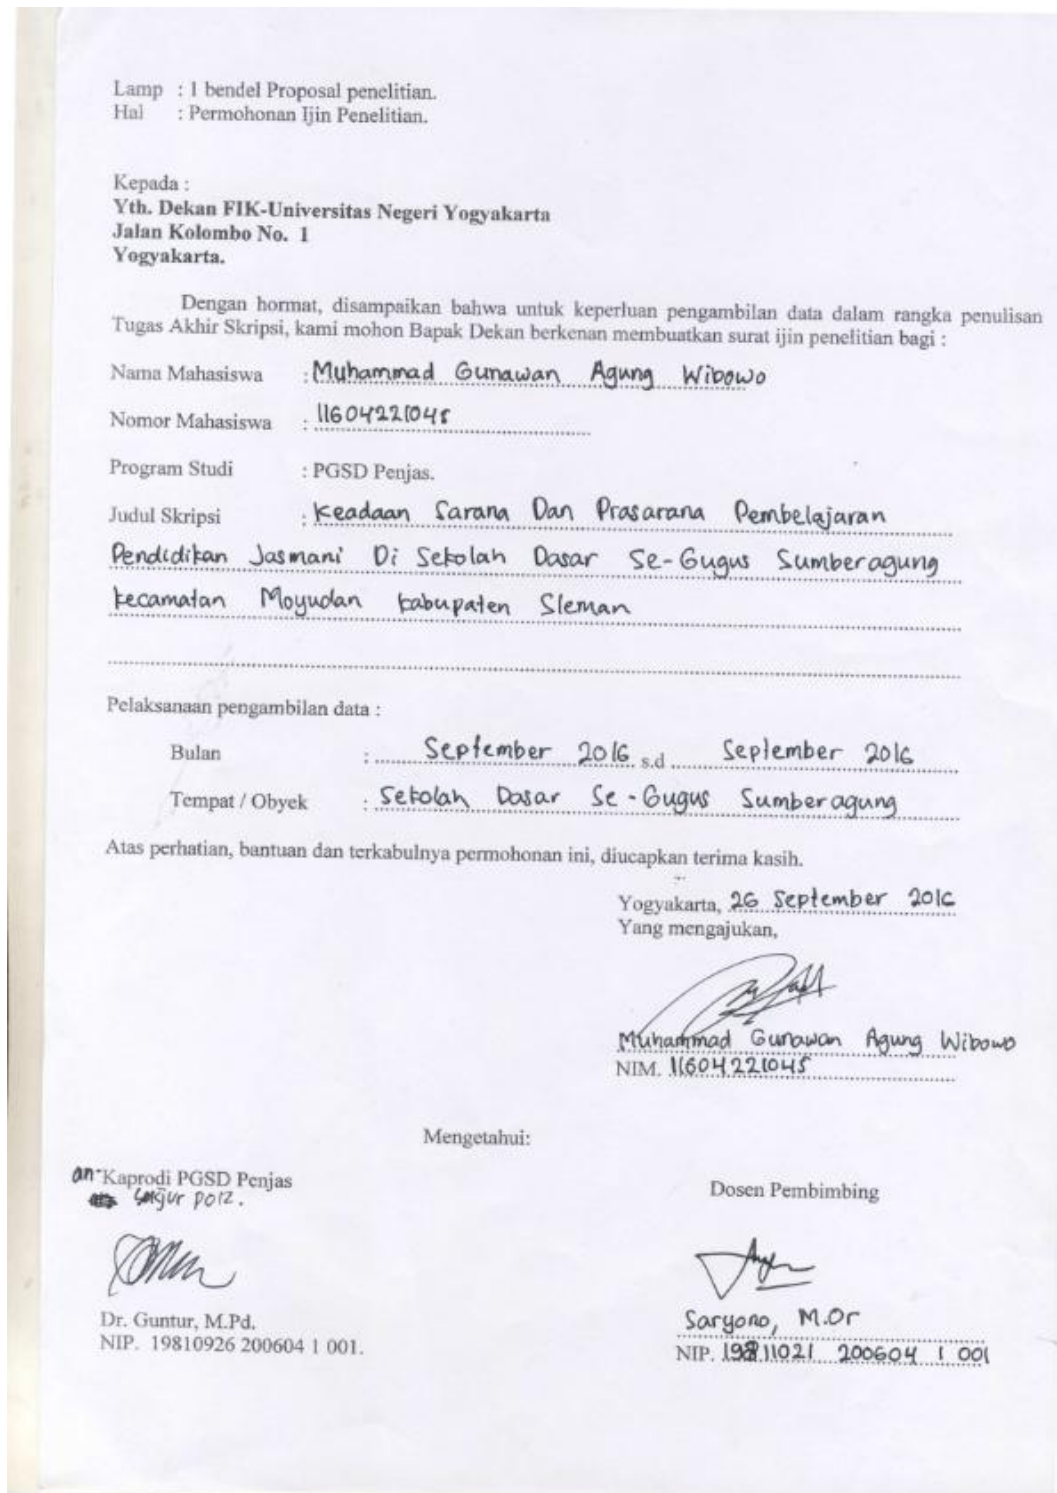 Lamp : 1 bendel Proposal penelitian.
Hal : Permohonan Ijin Penelitian.
Kepada :
Yth. Dekan FIK-Universitas Negeri Yogyakarta
Jalan Kolombo No. 1
Yogyakarta.
Dengan hormat, disampaikan bahwa untuk keperluan pengambilan data dalam rangka penulisan
Tugas Akhir Skripsi, kami mohon Bapak Dekan berkenan membuatkan surat ijin penelitian bagi :
Nama Mahasiswa : Muhammad Gunawan Agung Wibowo
Nomor Mahasiswa : 11604221045
Program Studi : PGSD Penjas.
Judul Skripsi : Keadaan Sarana Dan Prasarana Pembelajaran
Pendidikan Jasmani Di Sekolah Dasar Se-Gugus Sumberagung
Kecamatan Moyudan Kabupaten Sleman
Pelaksanaan pengambilan data :
Bulan : September 2016 s.d September 2016
Tempat / Obyek : Sekolah Dasar Se-Gugus Sumberagung
Atas perhatian, bantuan dan terkabulnya permohonan ini, diucapkan terima kasih.
Yogyakarta, 26 September 2016
Yang mengajukan,
Muhammad Gunawan Agung Wibowo
NIM. 11604221045
Mengetahui:
an Kaprodi PGSD Penjas
Dosen Pembimbing
Dr. Guntur, M.Pd.
NIP. 19810926 200604 1 001.
Saryono, M.Or
NIP. 19811021 200604 1 001